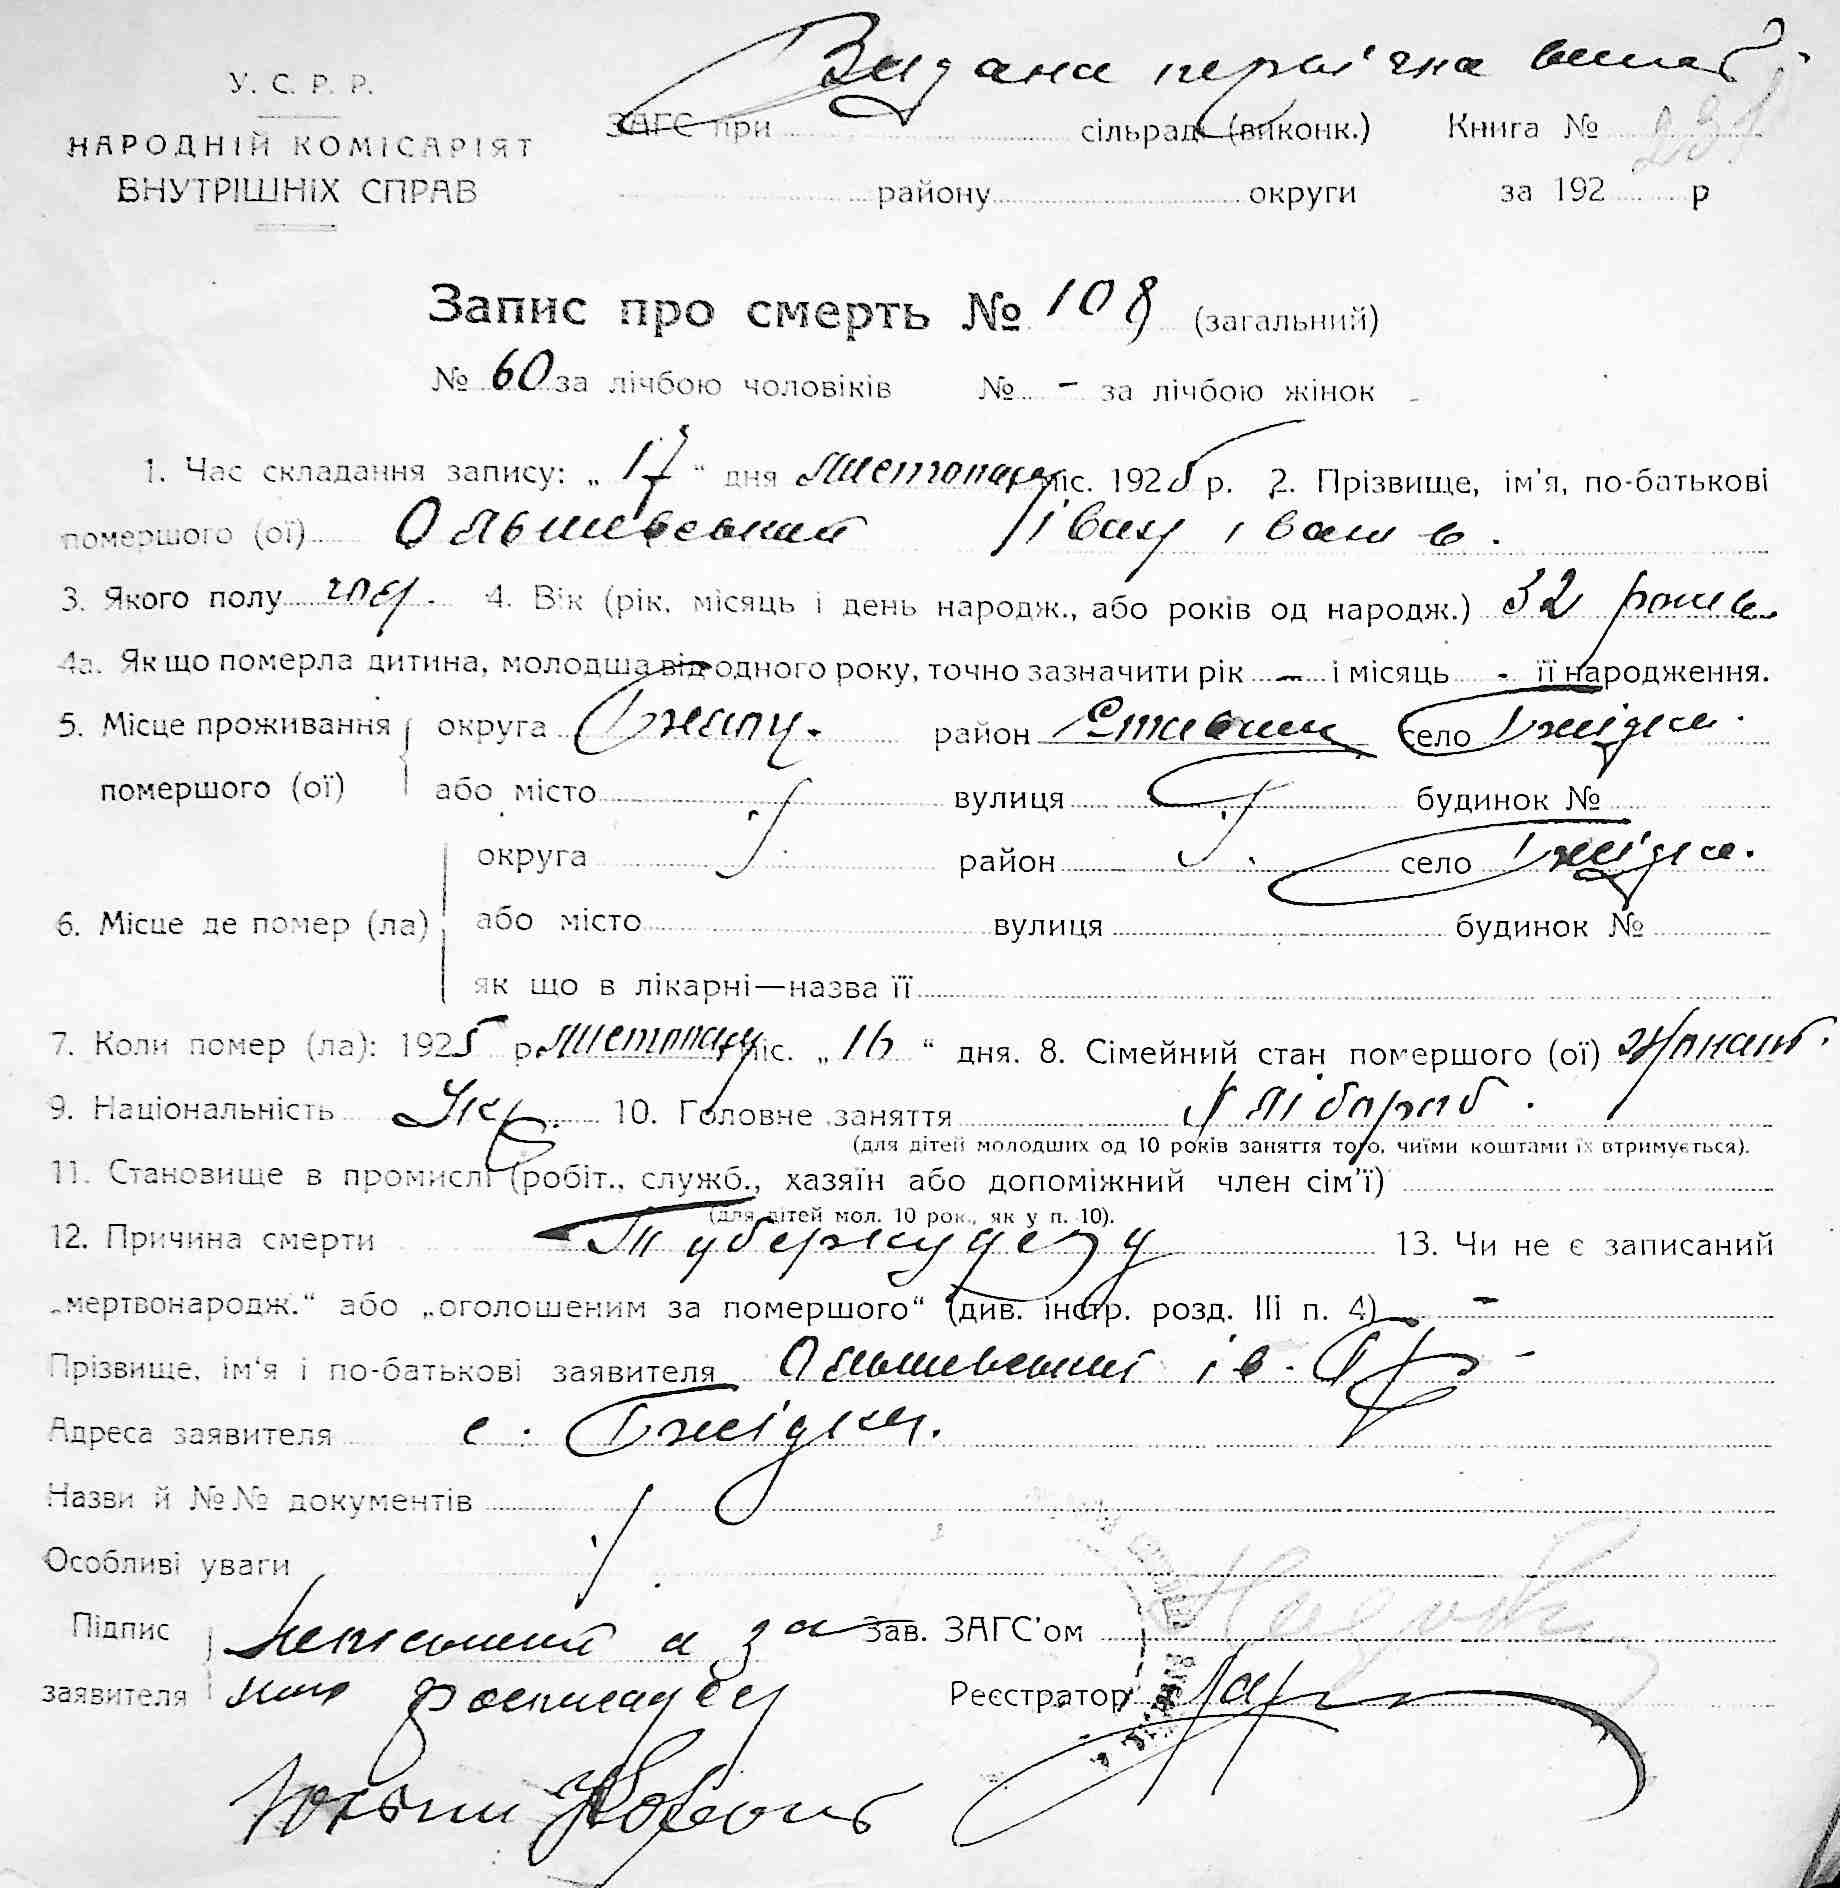 Видана первічна випис
У. С. Р. Р.
НАРОДНІЙ КОМІСАРІЯТ
ВНУТРІШНІХ СПРАВ
ЗАГС при сільраді (виконк.) Книга № 231
району округи за 192 р
Запис про смерть № 108 (загальний)
№ 60 за лічбою чоловіків № - за лічбою жінок
1. Час складання запису: „ 17 “ дня листопада міс. 1925 р. 2. Прізвище, ім'я, по-батькові
помершого (ої) Ольшевський Іван Іванів.
3. Якого полу чол. 4. Вік (рік, місяць і день народж., або років од народж.) 32 років
4а. Як що померла дитина, молодша від одного року, точно зазначити рік — і місяць - її народження.
5. Місце проживання помершого (ої) округа район село
або місто вулиця будинок №
6. Місце де помер (ла) округа район село
або місто вулиця будинок №
як що в лікарні—назва її
7. Коли помер (ла): 1925 р. листопаду міс. „ 16 “ дня. 8. Сімейний стан помершого (ої) жонат.
9. Національність Укр. 10. Головне заняття хлібороб.
(для дітей молодших од 10 років заняття того, чиїми коштами їх втримується).
11. Становище в промислі (робіт., служб., хазяїн або допоміжний член сім'ї)
(для дітей мол. 10 рок., як у п. 10).
12. Причина смерти Туберкульозу 13. Чи не є записаний
„мертвонародж.“ або „оголошеним за помершого“ (див. інстр. розд. III п. 4) -
Прізвище, ім'я і по-батькові заявителя Ольшевський Ів.
Адреса заявителя с.
Назви й №№ документів
Особливі уваги
Підпис заявителя неписьмений а за
нього росписався
Зав. ЗАГС'ом
Реєстратор